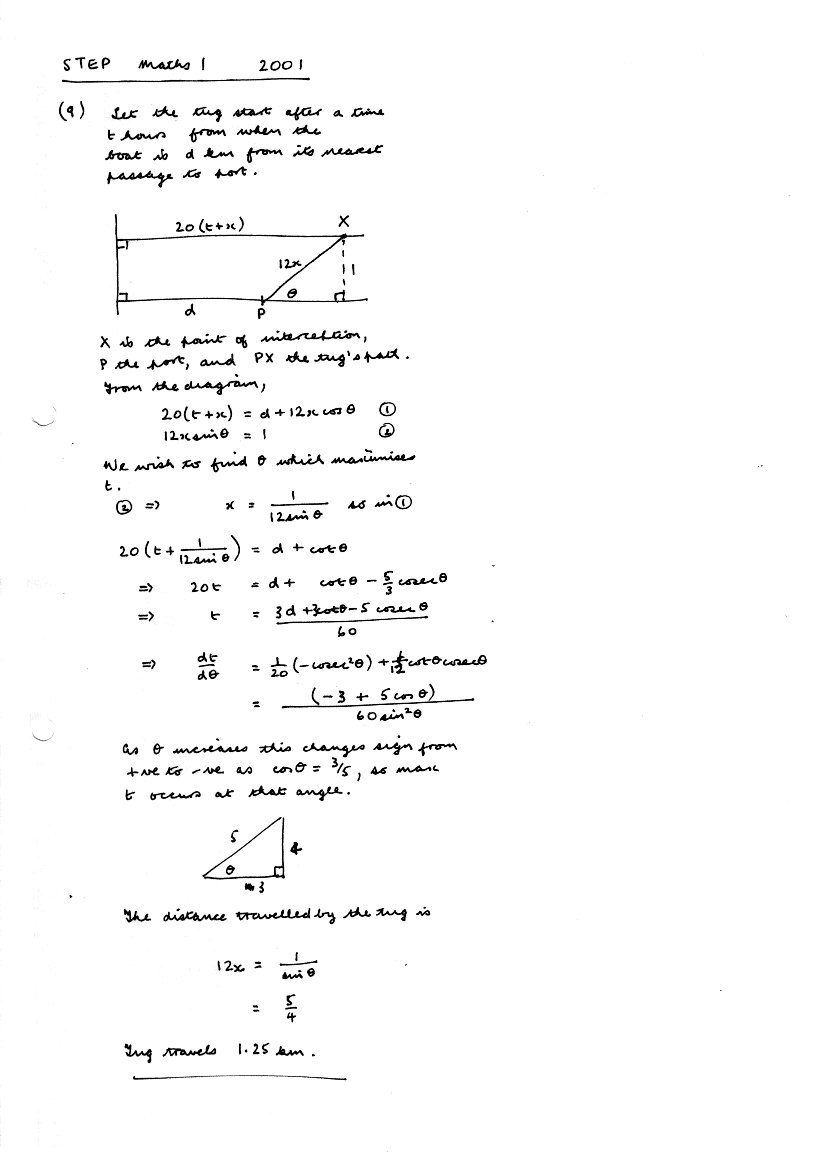 STEP Maths 1 2001
(9) Let the tug start after a time
t hours from when the
boat is d km from its nearest
passage to port.
20(t+x) X
12x 1
θ
d P
X is the point of interception,
P the port, and PX the tug's path.
From the diagram,
20(t+x) = d + 12x cos θ ①
12x sin θ = 1 ②
We wish to find θ which maximises
t.
② ⇒ x = 1/(12 sin θ) so in ①
20(t + 1/(12 sin θ)) = d + cot θ
⇒ 20t = d + cot θ - 5/3 cosec θ
⇒ t = (3d + 3cot θ - 5 cosec θ)/60
⇒ dt/dθ = 1/20 (-cosec²θ) + 1/12 cot θ cosec θ
= (-3 + 5 cos θ)/(60 sin²θ)
As θ increases this changes sign from
+ve to -ve as cos θ = 3/5, so max
t occurs at that angle.
5 4
θ
3
The distance travelled by the tug is
12x = 1/sin θ
= 5/4
Tug travels 1.25 km.